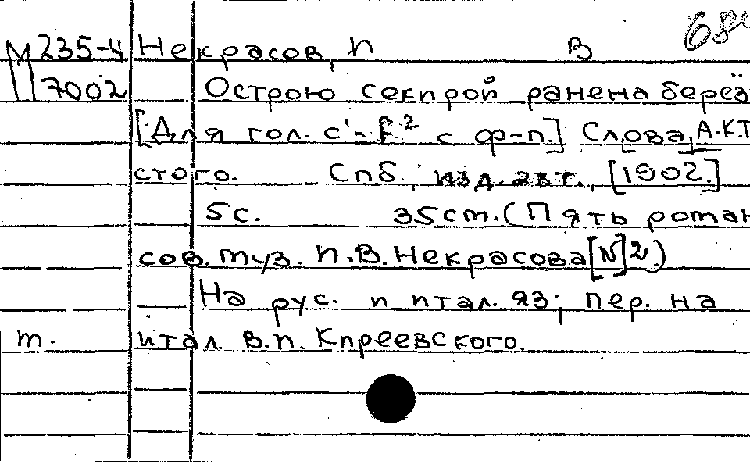 М 235-4 Некрасов, И В 68
7002 Острою секирой ранена берёз
[Для гол. c'-f² с ф-п.] Слова А.К.Т
стого. Спб., изд. авт., [1902.]
5с. 35см. (Пять роман
сов. муз. И.В. Некрасова [N] 2.)
На рус. и итал. яз; пер. на
т. итал В.И. Киреевского.